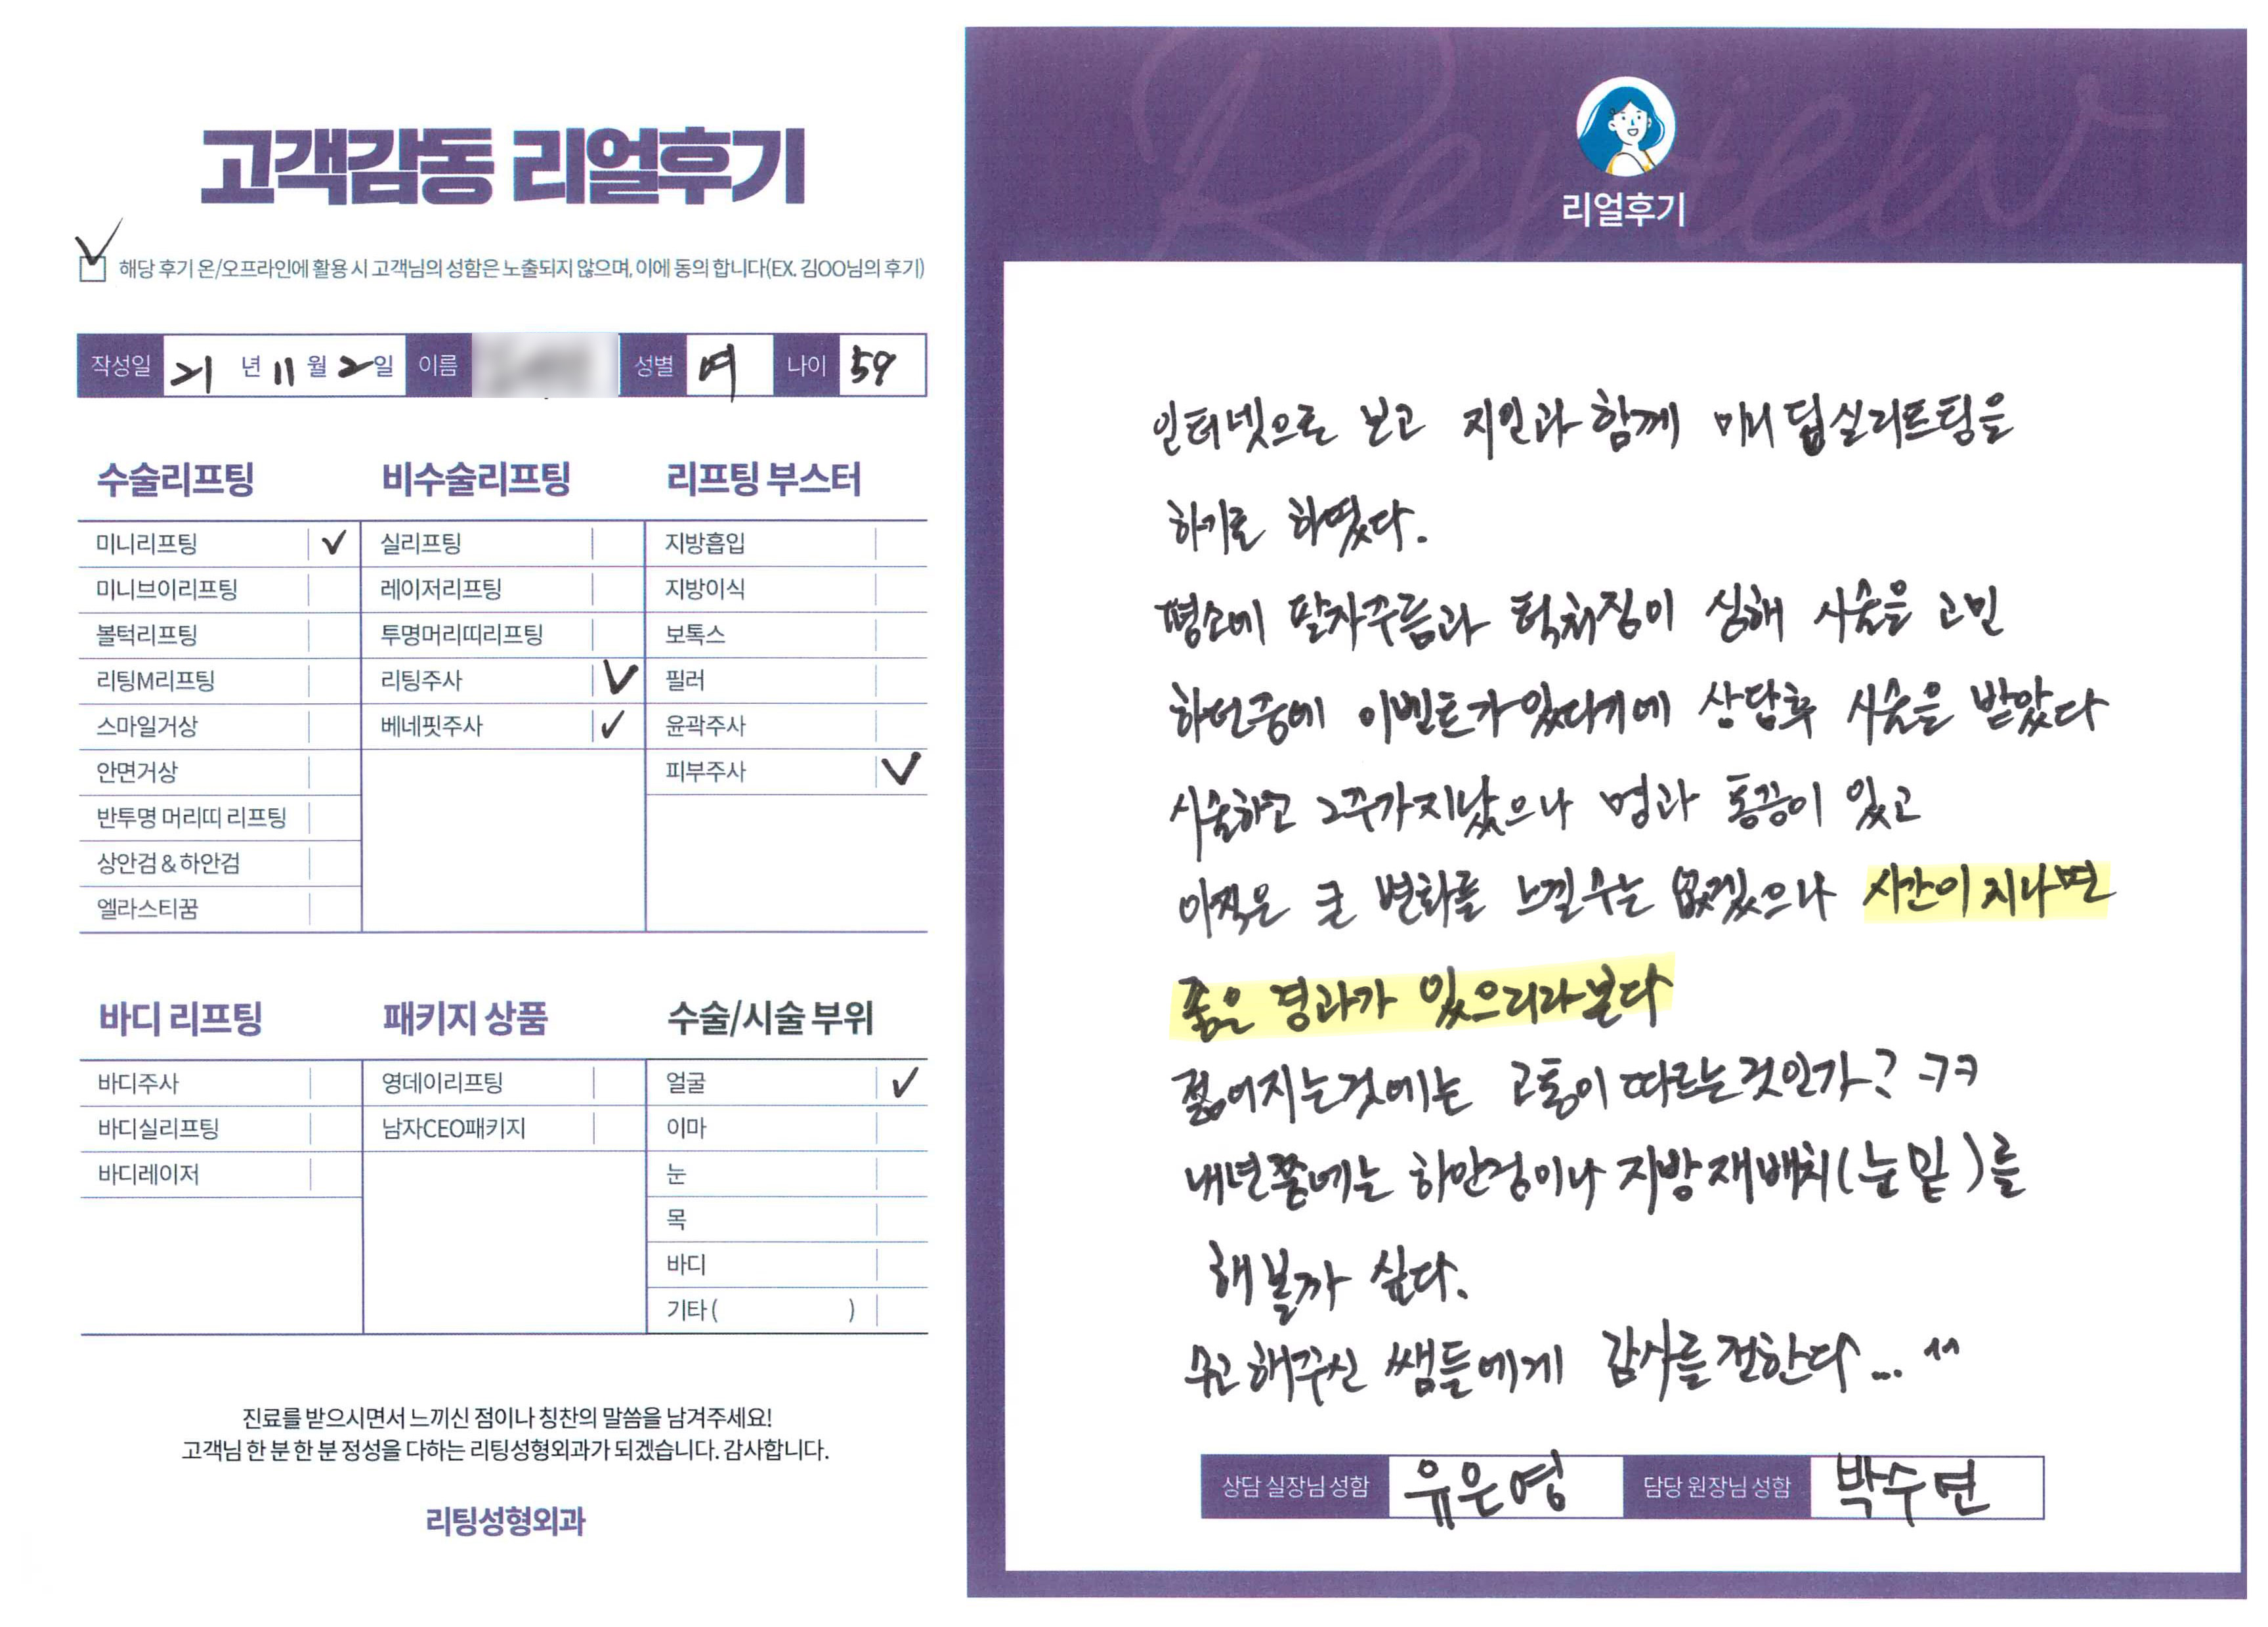 고객감동 리얼후기
해당 후기 온/오프라인에 활용 시 고객님의 성함은 노출되지 않으며, 이에 동의 합니다(EX. 김OO님의 후기)
작성일 21 년 11 월 2 일 이름 성별 여 나이 59
수술리프팅
미니리프팅 ✓
미니브이리프팅
볼턱리프팅
리팅M리프팅
스마일거상
안면거상
반투명 머리띠 리프팅
상안검 & 하안검
엘라스티꿈
비수술리프팅
실리프팅
레이저리프팅
투명머리띠리프팅
리팅주사 ✓
베네핏주사 ✓
리프팅 부스터
지방흡입
지방이식
보톡스
필러
윤곽주사
피부주사 ✓
바디 리프팅
바디주사
바디실리프팅
바디레이저
패키지 상품
영데이리프팅
남자CEO패키지
수술/시술 부위
얼굴 ✓
이마
눈
목
바디
기타 ( )
진료를 받으시면서 느끼신 점이나 칭찬의 말씀을 남겨주세요!
고객님 한 분 한 분 정성을 다하는 리팅성형외과가 되겠습니다. 감사합니다.
리팅성형외과
Review
리얼후기
인터넷으로 보고 지인과 함께 미니 딥실리프팅을
하기로 하였다.
평소에 팔자주름과 턱처짐이 심해 시술을 고민
하던중에 이벤트가 있다기에 상담후 시술을 받았다
시술하고 2주가 지났으나 멍과 통증이 있고
아직은 큰 변화를 느낄수는 없겠으나 시간이 지나면
좋은 경과가 있으리라 본다
젊어지는것에는 고통이 따르는것인가? ㅋㅋ
내년쯤에는 하안검이나 지방재배치(눈밑)를
해볼까 싶다.
수고해주신 쌤들에게 감사를 전한다... ^^
상담 실장님 성함 유은영 담당 원장님 성함 박수연